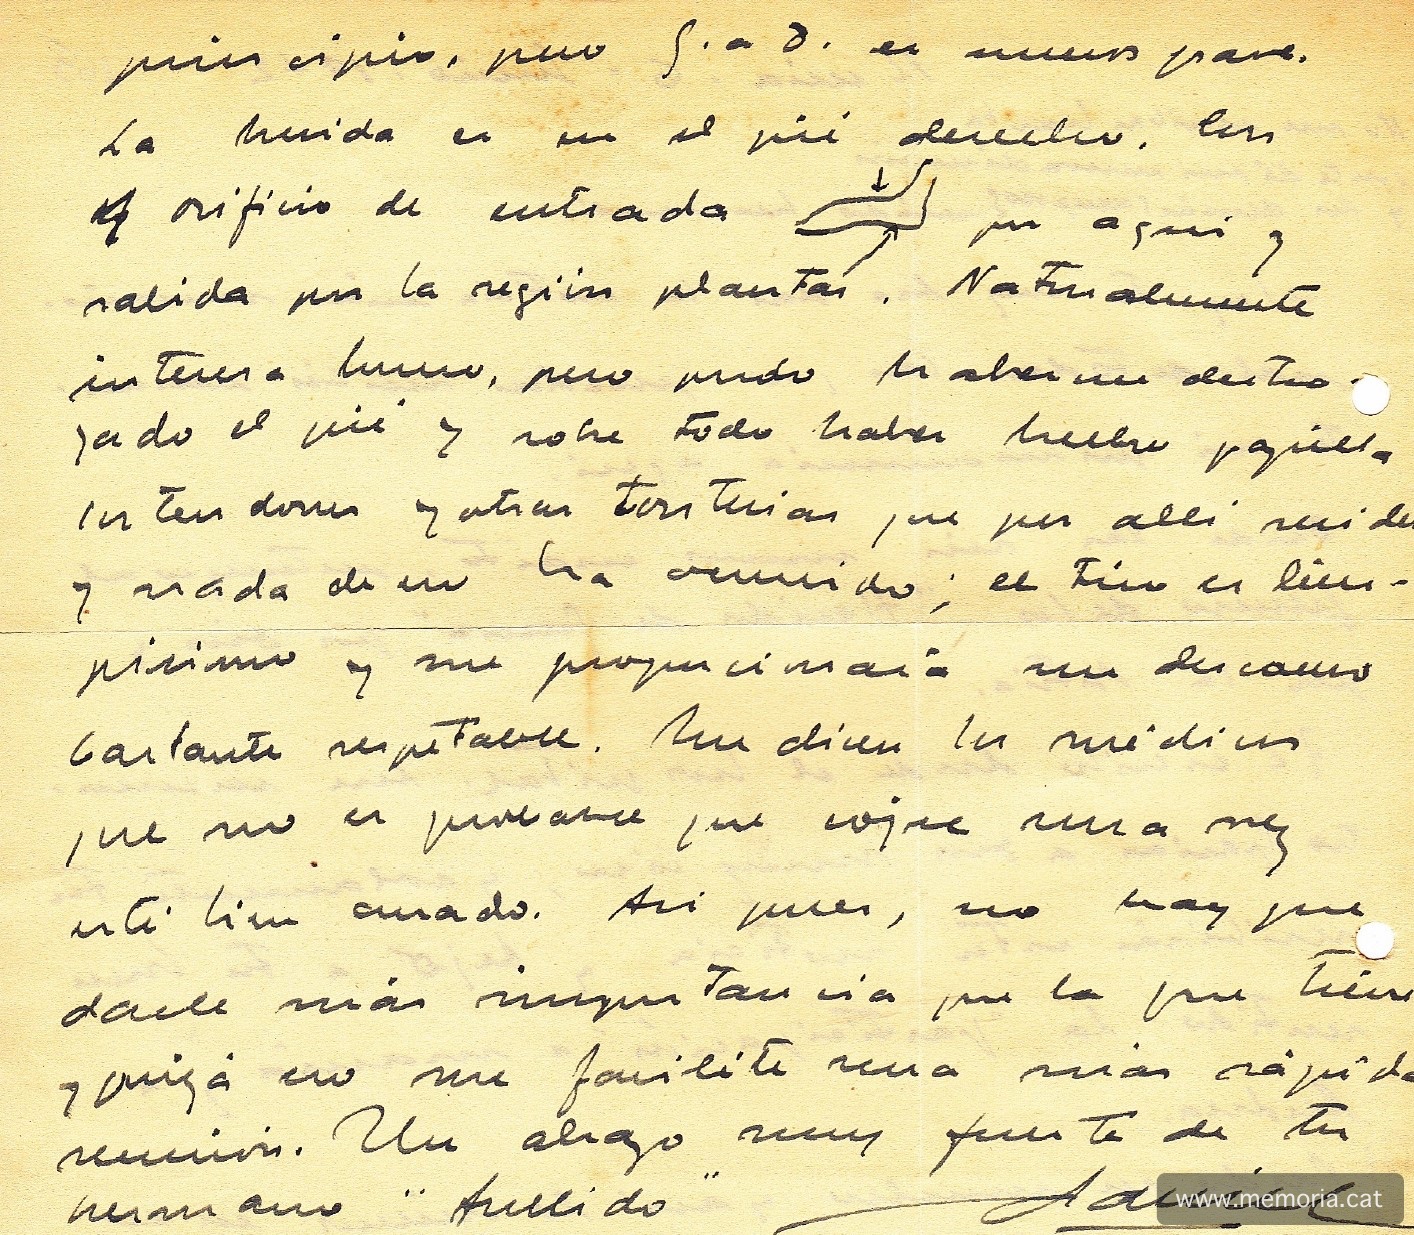 principio, pero G. a D. es menos grave.
La herida es en el pié derecho. Con
orificio de entrada por aqui y
salida por la región plantar. Naturalmente
interesa hueso, pero pudo haberme destro-
zado el pié y sobre todo haber hecho papilla
los tendones y otras tonterias que por alli
y nada de eso ha ocurrido; el tiro es lim-
pisimo y me proporcionará un descanso
bastante respetable. Me dicen los médicos
que no es probable que cojee una vez
esté bien curado. Asi pues, no hay que
darle más importancia que la que tiene
y quizá eso me facilite una más rápida
reunión. Un abrazo muy fuerte de tu
hermano "Aullido"
www.memoria.cat